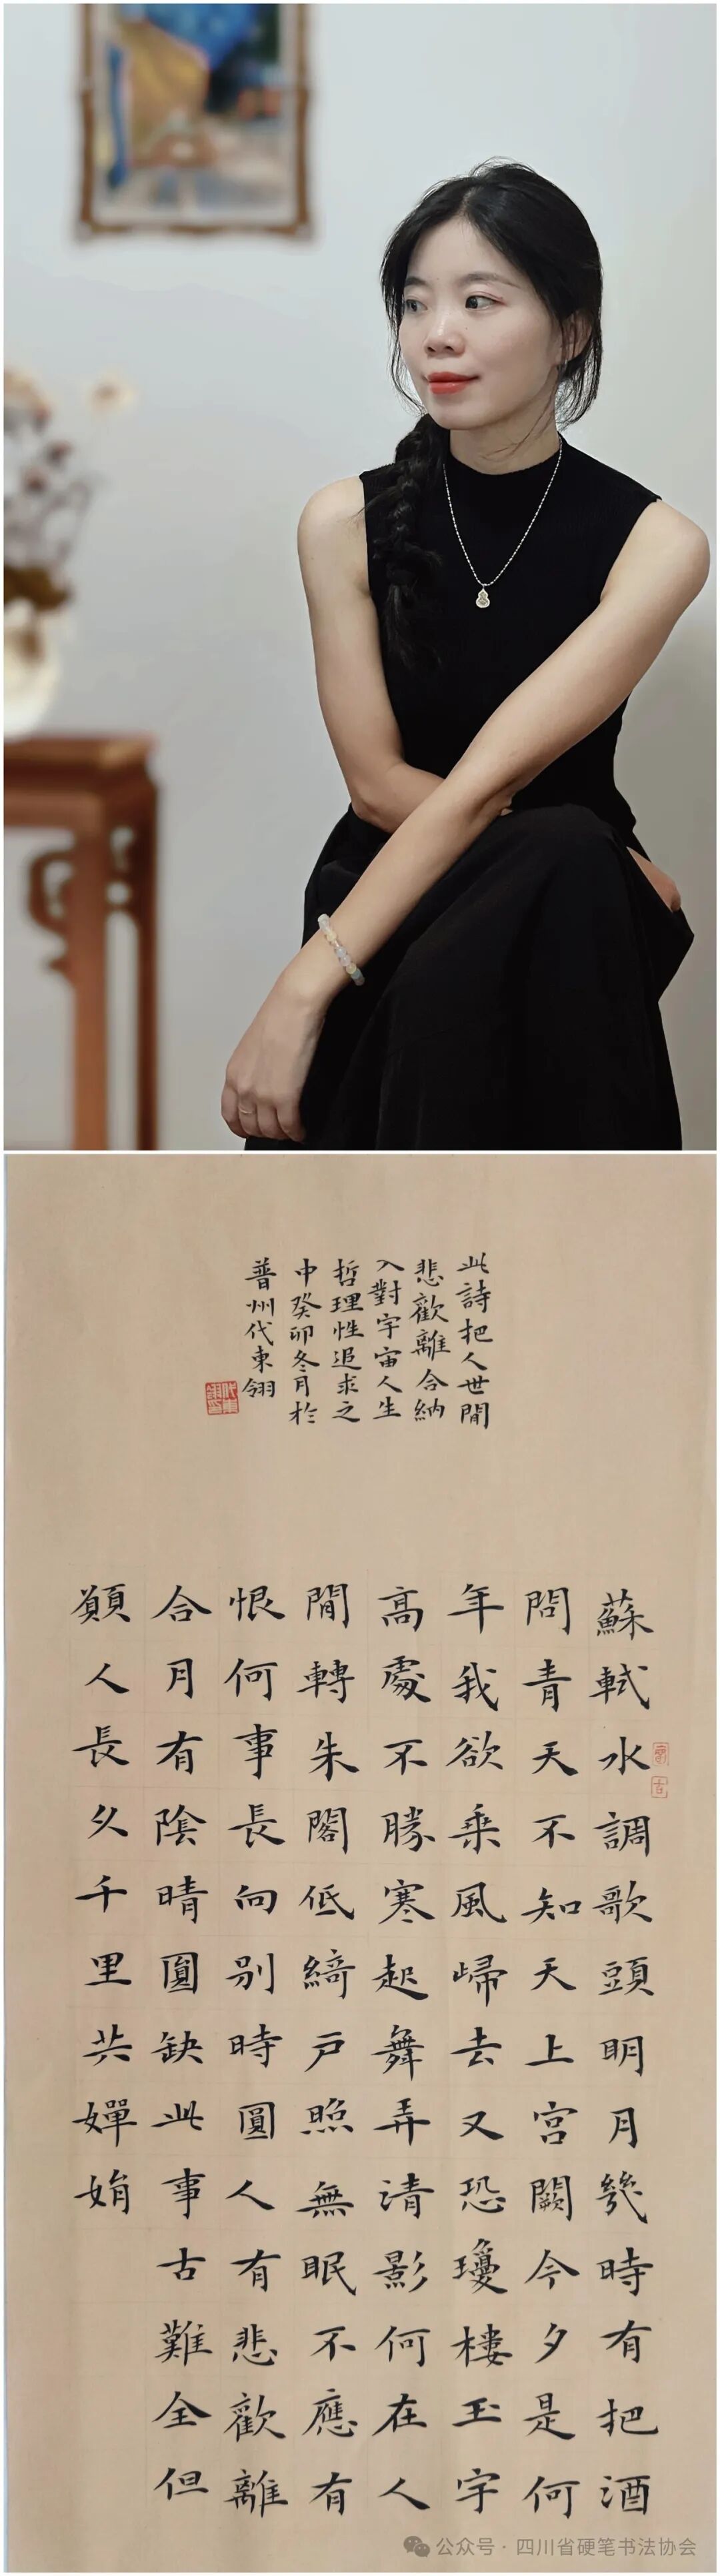 此詩把人世間
悲歡離合納
入對宇宙人生
哲理性追求之
中癸卯冬月於
普州代東翎
蘇軾水調歌頭明月幾時有把酒
問青天不知天上宮闕今夕是何
年我欲乘風歸去又恐瓊樓玉宇
高處不勝寒起舞弄清影何在人
間轉朱閣低綺戶照無眠不應有
恨何事長向別時圓人有悲歡離
合月有陰晴圓缺此事古難全但
願人長久千里共嬋娟
公众号·四川省硬笔书法协会